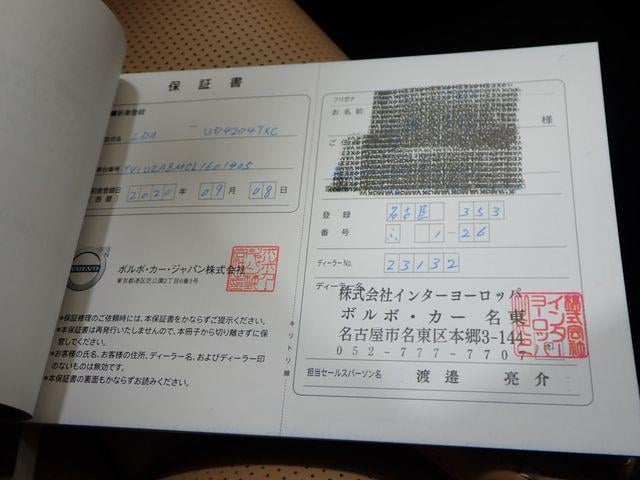 保証書
■新車登録
型式名 LDA － UD4204TXC
初度登録日 2020年 09月 08日
（西暦）
VOLVO
ボルボ・カー・ジャパン株式会社
東京都港区芝公園2丁目6番3号
＊保証修理のご依頼時には、本保証書をかならずご提示ください。
＊本保証書は再発行いたしませんので、本冊子から切り離さずに保
管してください。
＊お客様の氏名、お客様の住所、ディーラー名、およびディーラー印
のないものは無効です。
＊本保証書の裏面もかならずお読みください。
キリトリ線
フリガナ
お名前 様
登録 名古屋 353
番号 1－26
ディーラーNo. 23132
ディーラー名
株式会社インターヨーロッパ
ボルボ・カー 名東
名古屋市名東区本郷3-144
052-777-7707
担当セールスパーソン名 渡邉 亮介